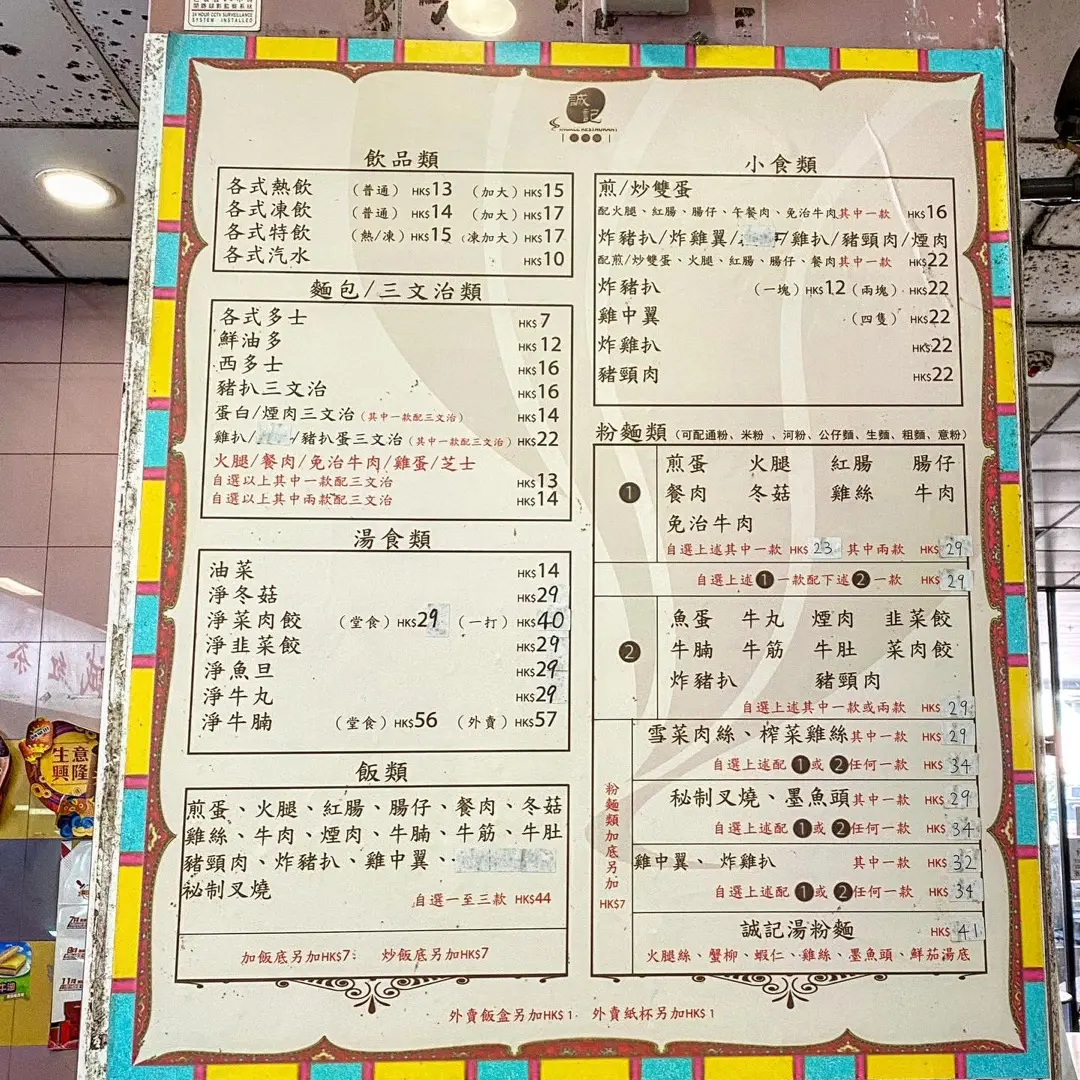 24 HOUR CCTV SURVEILLANCE
SYSTEM INSTALLED
誠記
飲品類
各式熱飲 (普通) HK$13 (加大) HK$15
各式凍飲 (普通) HK$14 (加大) HK$17
各式特飲 (熱/凍) HK$15 (凍加大) HK$17
各式汽水 HK$10
麵包/三文治類
各式多士 HK$7
鮮油多 HK$12
西多士 HK$16
豬扒三文治 HK$16
蛋白/煙肉三文治 (其中一款配三文治) HK$14
雞扒/ /豬扒蛋三文治 (其中一款配三文治) HK$22
火腿/餐肉/免治牛肉/雞蛋/芝士
自選以上其中一款配三文治 HK$13
自選以上其中兩款配三文治 HK$14
湯食類
油菜 HK$14
淨冬菇 HK$29
淨菜肉餃 (堂食) HK$29 (一打) HK$40
淨韭菜餃 HK$29
淨魚旦 HK$29
淨牛丸 HK$29
淨牛腩 (堂食) HK$56 (外賣) HK$57
飯類
煎蛋、火腿、紅腸、腸仔、餐肉、冬菇
雞絲、牛肉、煙肉、牛腩、牛筋、牛肚
豬頸肉、炸豬扒、雞中翼、
秘制叉燒 自選一至三款 HK$44
加飯底另加HK$7 炒飯底另加HK$7
小食類
煎/炒雙蛋
配火腿、紅腸、腸仔、午餐肉、免治牛肉其中一款 HK$16
炸豬扒/炸雞翼/ /雞扒/豬頸肉/煙肉
配煎/炒雙蛋、火腿、紅腸、腸仔、餐肉其中一款 HK$22
炸豬扒 (一塊) HK$12 (兩塊) HK$22
雞中翼 (四隻) HK$22
炸雞扒 HK$22
豬頸肉 HK$22
粉麵類 (可配通粉、米粉、河粉、公仔麵、生麵、粗麵、意粉)
1
煎蛋 火腿 紅腸 腸仔
餐肉 冬菇 雞絲 牛肉
免治牛肉
自選上述其中一款 HK$23 其中兩款 HK$29
自選上述1一款配下述2一款 HK$29
2
魚蛋 牛丸 煙肉 韭菜餃
牛腩 牛筋 牛肚 菜肉餃
炸豬扒 豬頸肉
自選上述其中一款或兩款 HK$29
粉麵類加底另加HK$7
雪菜肉絲、榨菜雞絲其中一款 HK$29
自選上述配1或2任何一款 HK$34
秘制叉燒、墨魚頭其中一款 HK$29
自選上述配1或2任何一款 HK$34
雞中翼、炸雞扒 其中一款 HK$32
自選上述配1或2任何一款 HK$34
誠記湯粉麵 HK$41
火腿絲、蟹柳、蝦仁、雞絲、墨魚頭、鮮茄湯底
外賣飯盒另加HK$1 外賣紙杯另加HK$1
生意
興隆